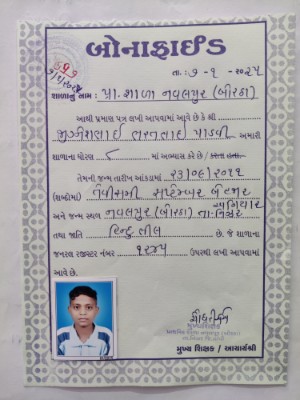 બોનાફાઈડ
તા.: ૭ - ૧ - ૨૦૨૫
શાળાનું નામ : પ્રા. શાળા નવલપુર (બોરઠા)
આથી પ્રમાણ પત્ર લખી આપવામાં આવે છે કે શ્રી
જીગ્નેશભાઈ ભરતભાઈ પાડવી અમારી
શાળાના ધોરણ ૮ માં અભ્યાસ કરે છે / કરતા હતા.
તેમની જન્મ તારીખ આંકડામાં ૨૩/૦૯/૨૦૧૧
(શબ્દોમાં) ત્રેવીસમી સપ્ટેમ્બર બે હજાર અગિયાર
અને જન્મ સ્થળ નવલપુર (બોરઠા) તા. નિઝર
તથા જાતિ હિન્દુ ભીલ છે. જે શાળાના
જનરલ રજીસ્ટર નંબર ૧૨૪૫ ઉપરથી લખી આપવામાં
આવે છે.
મુખ્ય શિક્ષક / આચાર્યશ્રી